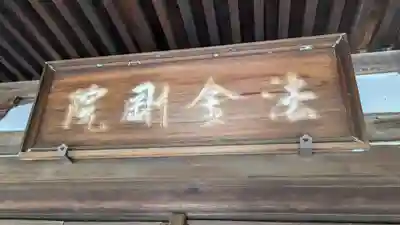 法金剛院